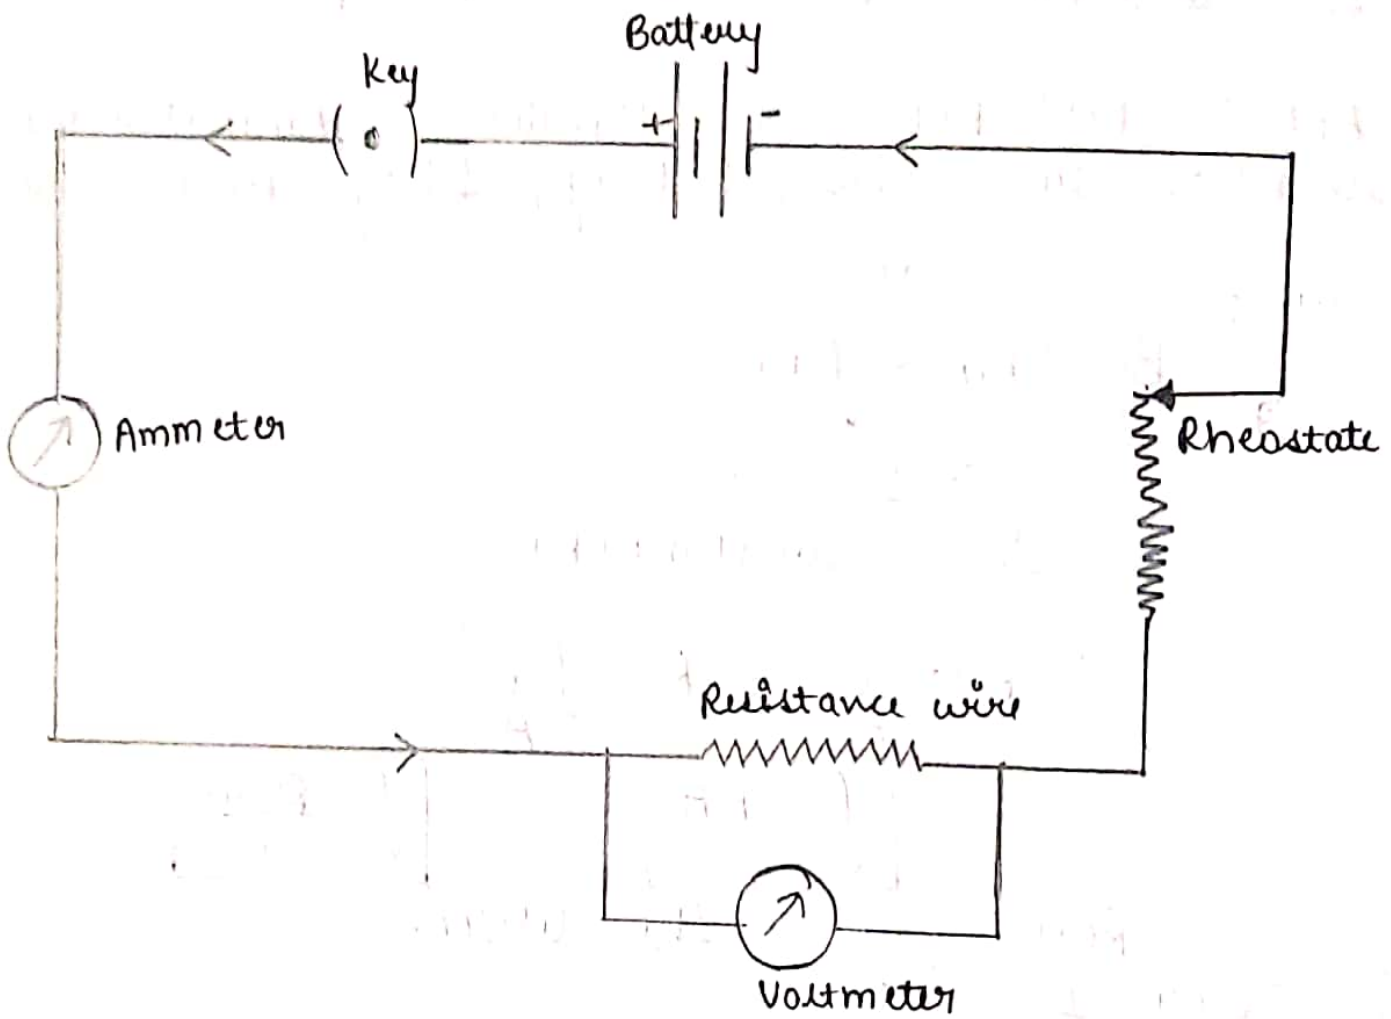 Battery
Key
+ -
Ammeter
Rheostate
Resistance wire
Voltmeter